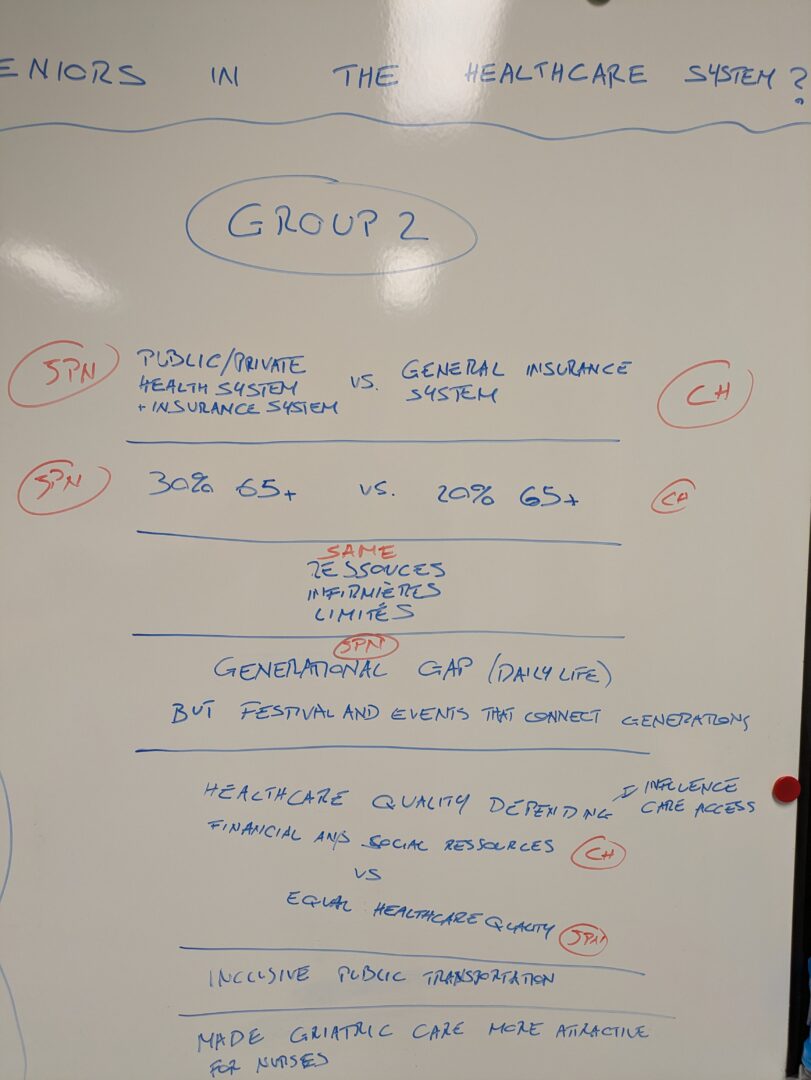 ENIORS IN THE HEALTHCARE SYSTEM?
GROUP 2
SPN
PUBLIC/PRIVATE
HEALTH SYSTEM
+ INSURANCE SYSTEM
VS.
GENERAL INSURANCE
SYSTEM
CH
SPN
30% 65+ VS. 20% 65+
CH
SAME
RESSOUCES
INFIRMIÈRES
LIMITÉS
SPN
GENERATIONAL GAP (DAILY LIFE)
BUT FESTIVAL AND EVENTS THAT CONNECT GENERATIONS
HEALTHCARE QUALITY DEPENDING
INFLUENCE
CARE ACCESS
FINANCIAL AND SOCIAL RESSOURCES CH
VS
EQUAL HEALTHCARE QUALITY SPN
INCLUSIVE PUBLIC TRANSPORTATION
MADE GRIATRIC CARE MORE ATTRACTIVE
FOR NURSES